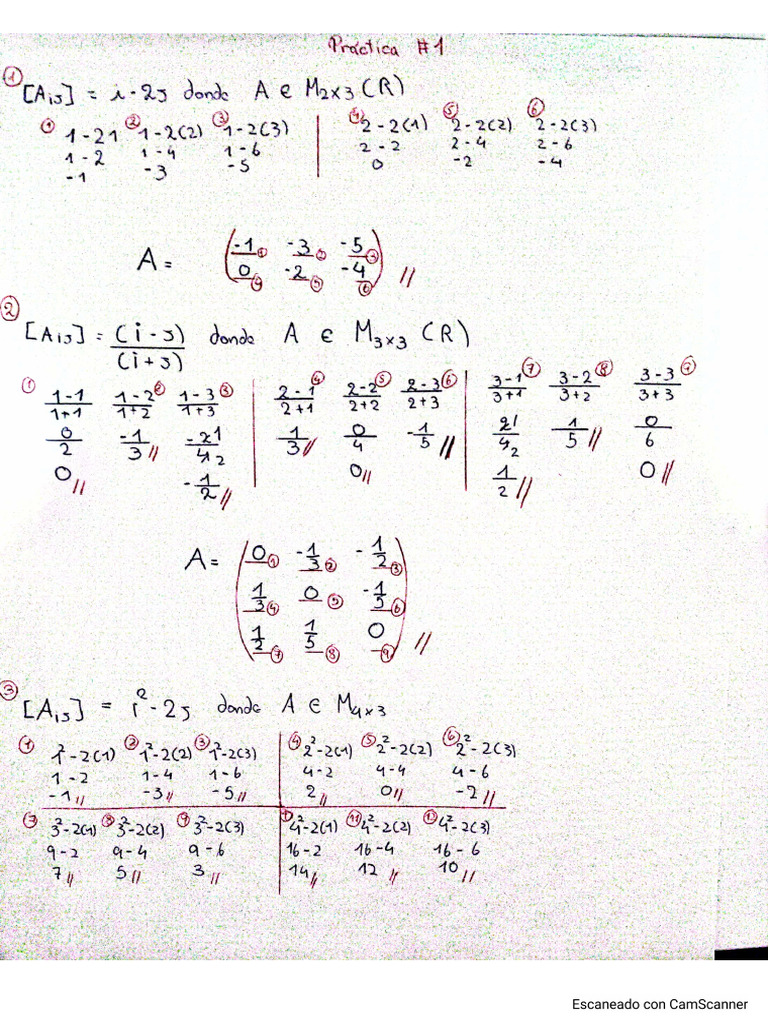 Práctica #1
① [Aij] = i - 2j donde A ∈ M2x3 (R)
① 1-21 ② 1-2(2) ③ 1-2(3) | ④ 2-2(1) ⑤ 2-2(2) ⑥ 2-2(3)
1-2 1-4 1-6 2-2 2-4 2-6
-1 -3 -5 0 -2 -4
-1 ① -3 ② -5 ③
A =
0 ④ -2 ⑤ -4 ⑥ //
② [Aij] = (i-j)/(i+j) donde A ∈ M3x3 (R)
① (1-1)/(1+1) (1-2)/(1+2) ② (1-3)/(1+3) ③ | (2-1)/(2+1) ④ (2-2)/(2+2) ⑤ (2-3)/(2+3) ⑥ | (3-1)/(3+1) ⑦ (3-2)/(3+2) ⑧ (3-3)/(3+3) ⑨
0/2 -1/3 // -2 1/4 2 1/3 // 0/4 -1/5 // 2 1/4 2 1/5 // 0/6
0 // -1/2 // 0 // 1/2 // 0 //
0 ① -1/3 ② -1/2 ③
A =
1/3 ④ 0 ⑤ -1/5 ⑥
1/2 ⑦ 1/5 ⑧ 0 ⑨ //
③ [Aij] = i² - 2j donde A ∈ M4x3
① 1²-2(1) ② 1²-2(2) ③ 1²-2(3) | ④ 2²-2(1) ⑤ 2²-2(2) ⑥ 2²-2(3)
1-2 1-4 1-6 4-2 4-4 4-6
-1 // -3 // -5 // 2 // 0 // -2 //
⑦ 3²-2(1) ⑧ 3²-2(2) ⑨ 3²-2(3) | ⑩ 4²-2(1) ⑪ 4²-2(2) ⑫ 4²-2(3)
9-2 9-4 9-6 16-2 16-4 16-6
7 // 5 // 3 // 14 // 12 // 10 //
Escaneado con CamScanner